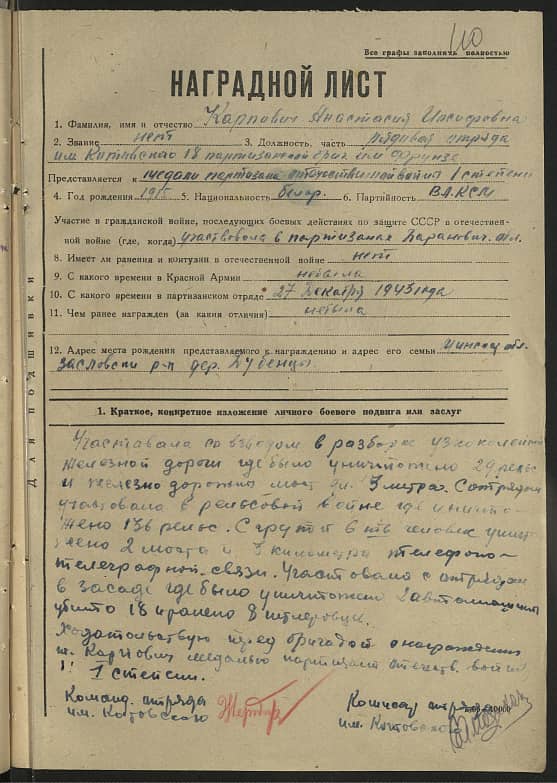 110
Все графы заполнить полностью
НАГРАДНОЙ ЛИСТ
1. Фамилия, имя и отчество Карпович Анастасия Иосифовна
2. Звание нет 3. Должность, часть рядовая отряда
им. Котовского 18 партизанской бриг. им Фрунзе
Представляется к медали партизана отечественной войны 1 степени
4. Год рождения 5. Национальность белар. 6. Партийность ВЛКСМ
Участие в гражданской войне, последующих боевых действиях по защите СССР и отечествен-
ной войне (где, когда) участвовола в партизанах Баранович. обл.
8. Имеет ли ранения и контузии в отечественной войне нет
9. С какого времени в Красной Армии небыла
10. С какого времени в партизанском отряде 27 декабря 1943 года
11. Чем ранее награжден (за какия отличия) небыла
12. Адрес места рождения представляемого к награждению и адрес его семьи Минская обл.
Засловски р-н дер. Дубенцы
Для подшивки
1. Краткое, конкретное изложение личного боевого подвига или заслуг
Участвовала со взводом в разборе узкоколейной
железной дороги где было уничтожено 29 рельс
и железно дорожно мост дл. 3 метра. С отрядом
участвовала в рельсовой войне где уничто-
жено 136 рельс. С групой в человек унич
жено 2 моста и 3 километра телефоно-
телеграфной связи. Участвовала с отрядом
в засаде где было уничтожено 2 автомашины
убито 18 и ранено 8 гитлеровцев.
Ходатайствую перед бригадой о награждении
т. Карпович медалью партизан отечеств. войны
1 степени.
Команд. отряда
им. Котовского
Комиссар отряда
им. Котовского